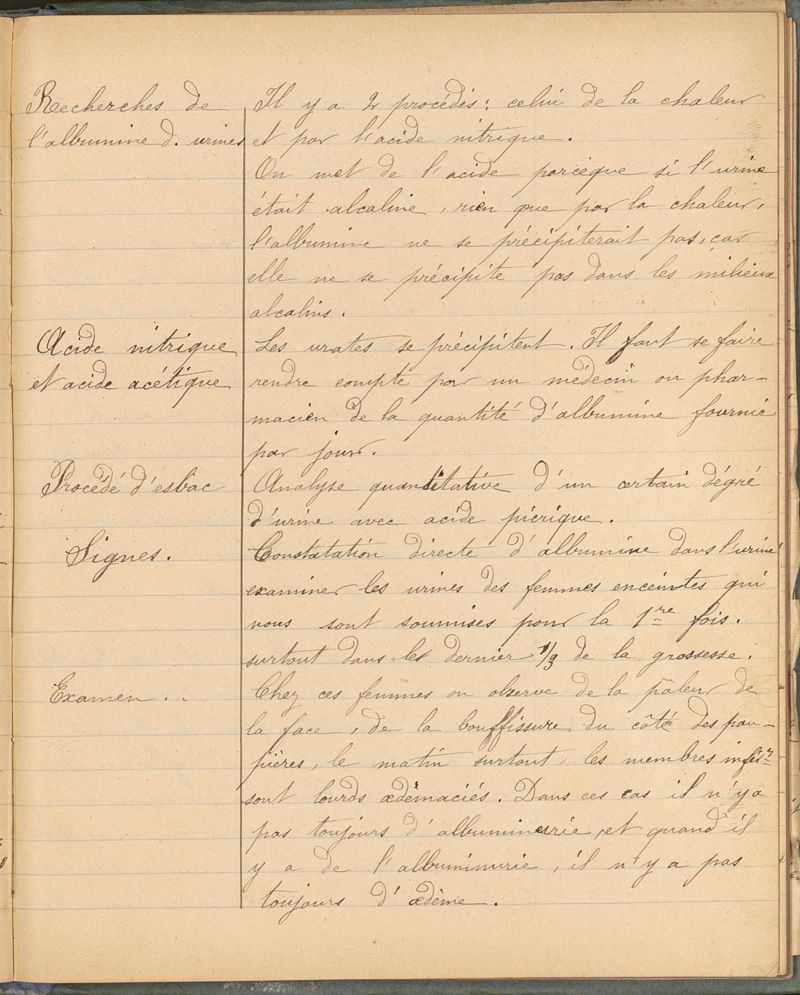 Recherches de
l'albumine d. urines
Il y a 2 procédés : celui de la chaleur
et par l'acide nitrique.
On met de l'acide parceque si l'urine
était alcaline, rien que par la chaleur,
l'albumine ne se précipiterait pas, car
elle ne se précipite pas dans les milieux
alcalins.
Acide nitrique
et acide acétique
Les urates se précipitent. Il faut se faire
rendre compte par un médecin ou phar-
macien de la quantité d'albumine fournie
par jour.
Procédé d'esbac
Analyse quantitative d'un certain dégré
d'urine avec acide picrique.
Signes.
Constatation directe d'albumine dans l'urine
examiner les urines des femmes enceintes qui
vous sont soumises pour la 1re fois.
surtout dans le dernier 1/3 de la grossesse.
Examen..
Chez ces femmes on observe de la pâleur de
la face, de la bouffissure du côté des pau-
pières, le matin surtout, les membres infers
sont lourds œdémaciés. Dans ces cas il n'y a
pas toujours d'albuminurie, et quand il
y a de l'albuminurie, il n'y a pas
toujours d'œdème.